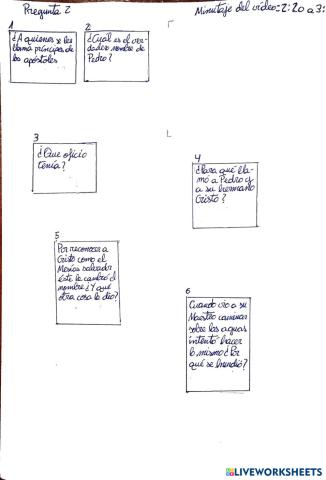 Pregunta 2
Minutaje del vídeo=2:20 a 3:
1
¿A quienes se les
llama príncipes de
los apóstoles
2
¿Cuál es el ver-
dadero nombre de
Pedro?
3
¿Que oficio
tenía?
4
¿Para qué lla-
mó a Pedro y
a su hermano
Cristo?
5
Por reconocer a
Cristo como el
Mesías salvador
éste le cambió el
nombre ¿Y qué
otra cosa le dio?
6
Cuando vio a su
Maestro caminar
sobre las aguas
intentó hacer
lo mismo ¿Por
qué se hundió?
LIVEWORKSHEETS